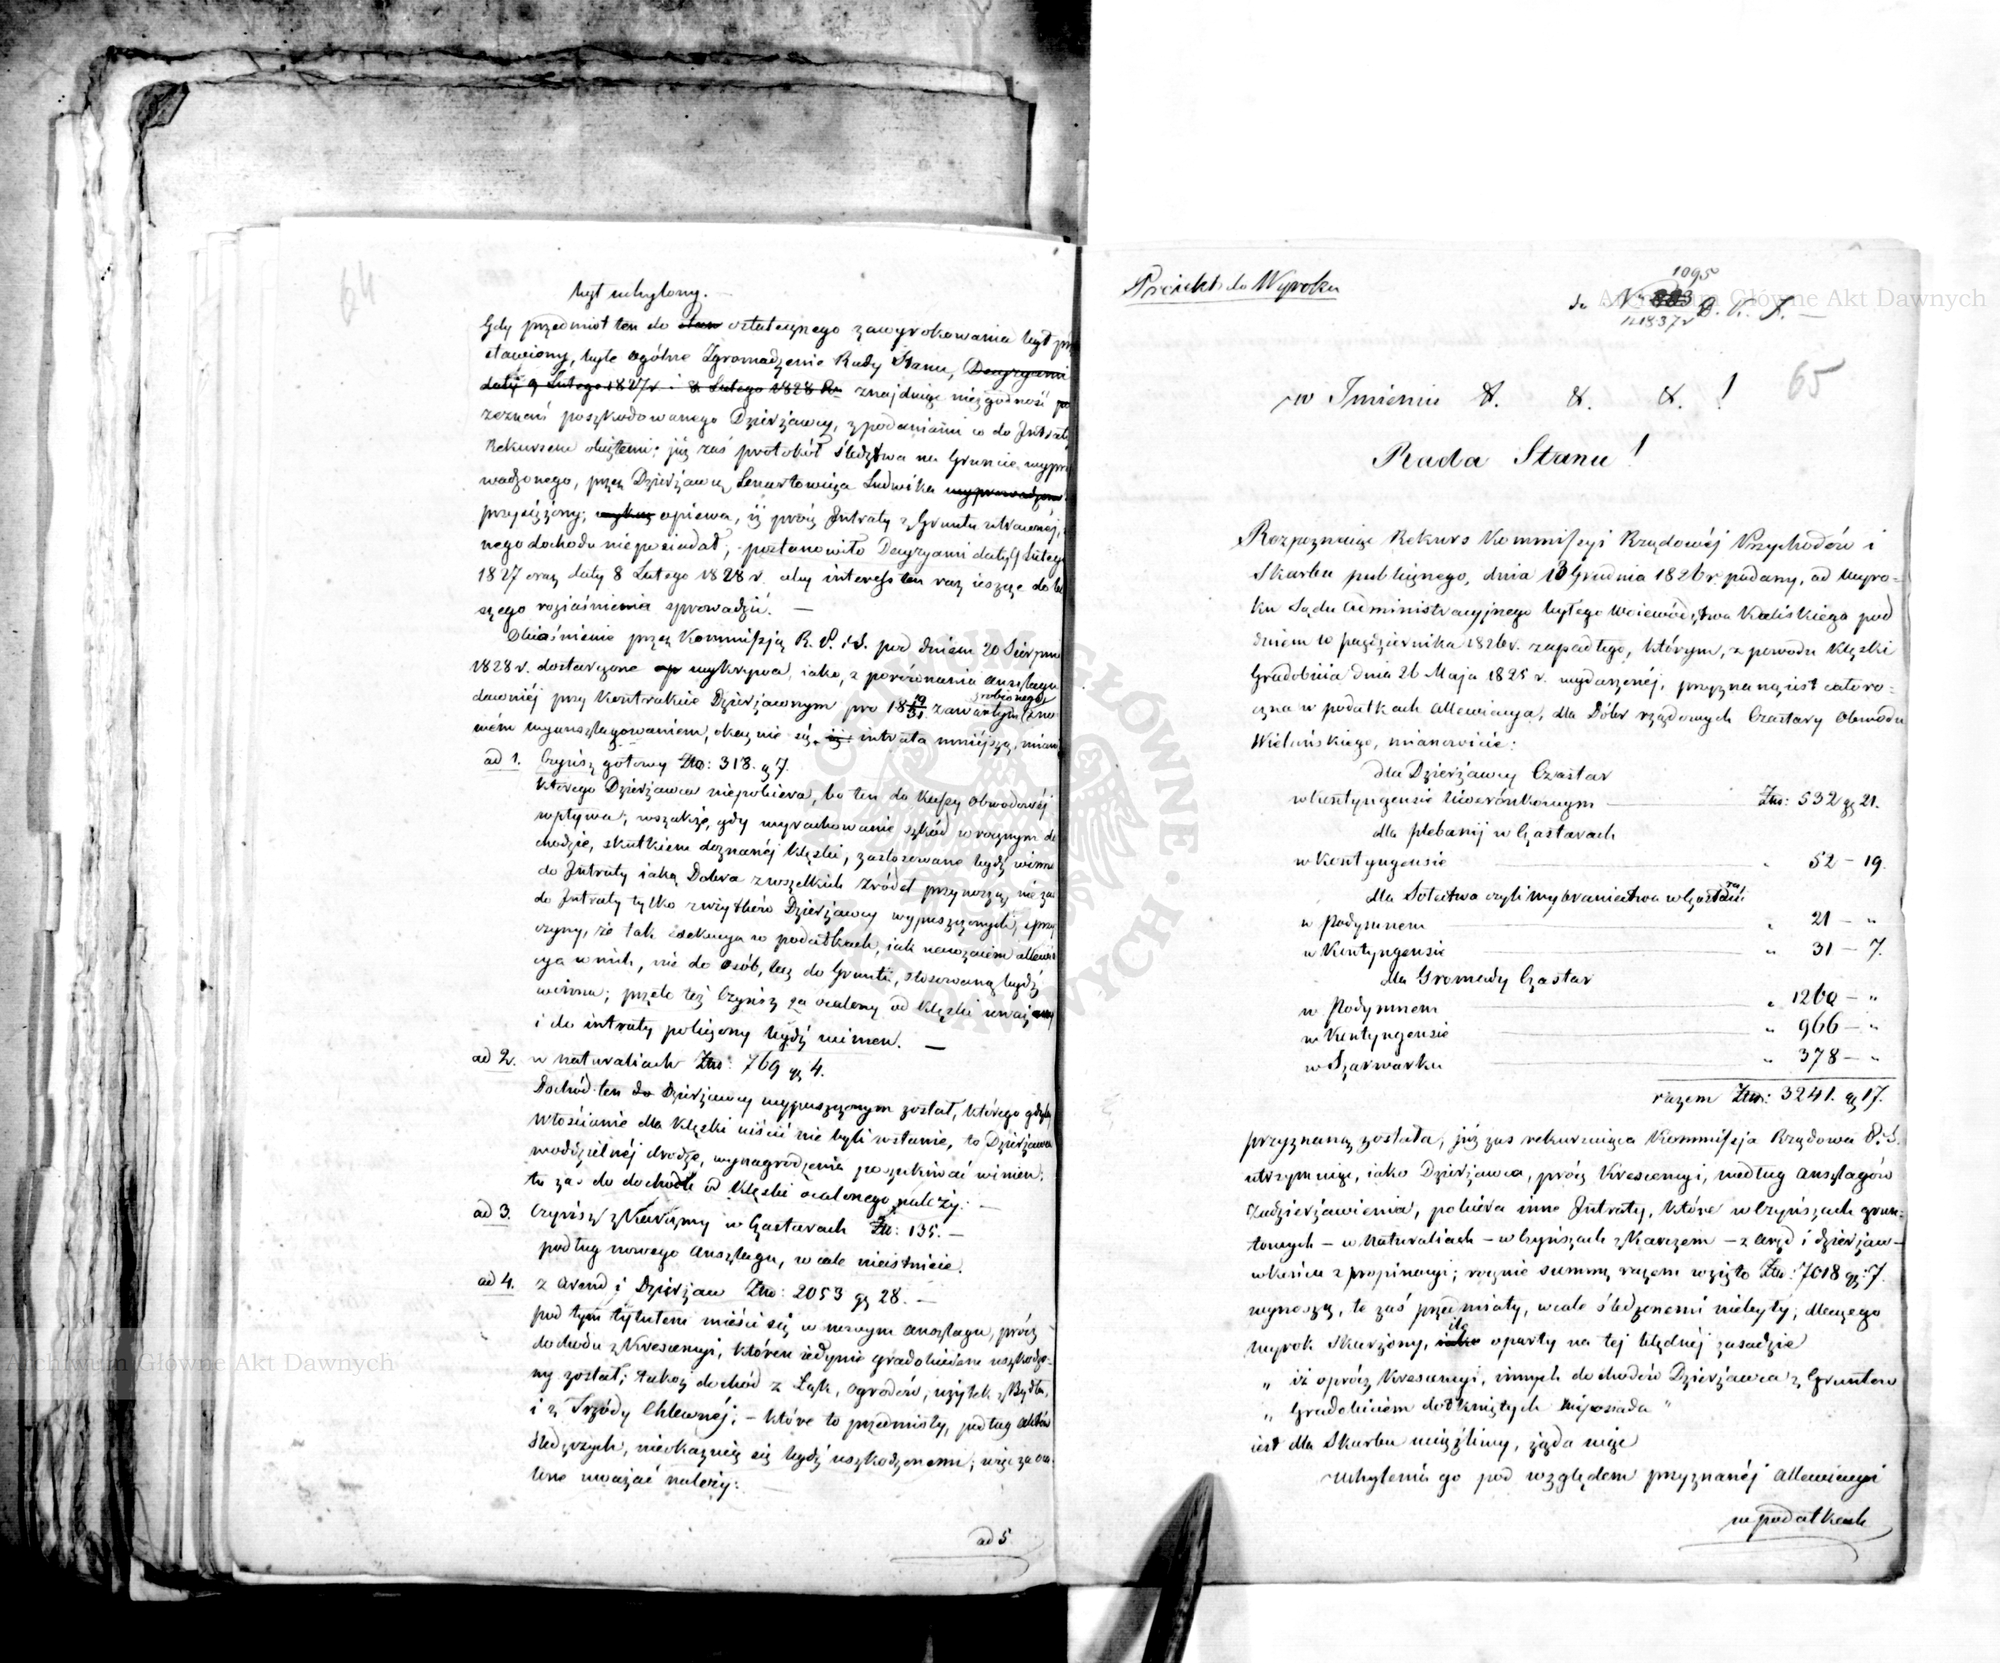 64
był uchylony. —
Gdy przedmiot ten do ostatecznego zawyrokowania był
stawiony, było ogólne Zgromadzenie Rady Stanu, Decyzyami
daty 9 Lutego 1827 r i 8 Lutego 1828 Ru znajduiąc niezgodność
zeznań poszkodowanego Dzierżawcy, z podaniami co do Intrat
Rekursem obiętemi; już zaś protokół śledztwa na Gruncie wypro
wadzonego, przez Dzierżawcę Lenartowicza Ludwika wyprowadzone
przysiężony; opiewa, iż prócz Intraty z Gruntu utraconéj,
nego dochodu nieposiadał, postanowiło Decyzyami daty 9 Lutego
1827 oraz daty 8 Lutego 1828 r. aby interess ten raz ieszcze do
szego roziaśnienia sprowadzić. —
Obiaśnienie przez Kommissją R. P. i S. pod dniem 20 Sierpnia
1828 r. dostarczone wykrywa, iako, z porównania anszlagu
dawniéj przy Kontrakcie Dzierżawnym pro 18 19/31 zawartym zrobionego z no
wém wyanszlagowaniem, okazuie się, iż intrata mniejszą, miano
ad 1. Czynsz gotowy Złt: 318. g 7.
którego Dzierżawca niepobiera, bo ten do Kassy Obwodowéj
wpływa; wszakże, gdy wyrachowanie szkód w rocznym do
chodzie, skutkiem doznanéj klęski, zastosowane bydź winno
do Intraty iaką Dobra z wszelkich źródeł przynoszą, nie zaś
do Intraty tylko z użytków Dzierżawcy wypuszczonych, z przy
czyny, że tak exekucya w podatkach, iak nawzaiem allewia
cya w nich, nie do osób, lecz do Gruntu, stosowaną bydź
winna; przeto też Czynsz za ocalony od klęski uważany
i do intraty policzony bydź winien. —
ad 2. w naturaliach Złt: 769 gr 4.
Dochód ten Dzierżawcy wypuszczonym został, którego gdyby
Włościanie dla klęski uiścić nie byli w stanie, to Dzierżawca
w oddzielnéj drodze, wynagrodzenia poszukiwać winien;
tu zaś do dochodu od klęski ocalonego należy. —
ad 3. Czynsz z Karczmy w Czastarach Złt: 135. —
podług nowego anszlagu, wcale nieistnieie.
ad 4. z Arend i Dzierżaw Złt: 2053 gr 28. —
pod tym tytułem mieści się w nowym anszlagu, prócz
dochodu z Krescencyi, któren iedynie gradobiciem uszkodzo-
ny został; takoż dochód z Łąk, ogrodów, użytek z Bydła,
i z Trzody Chlewnéj; — które to przedmioty, podług aktów
śledczych, nieokazuią się bydź uszkodzonemi; więc za oca
lone uważać należy:
ad 5
Proiekt do Wyroku
1095
do Nr 883 B. U. S. —
1837 r
65
w Imieniu &. &. &. !
Rada Stanu!
Rozpoznaiąc Rekurs Kommissyi Rządowéj Przychodów i
Skarbu publicznego, dnia 13 Grudnia 1826 r. podany, od Wyro-
ku Sądu Administracyjnego byłego Woiewództwa Kaliskiego pod
dniem 10 października 1826 r. zapadłego, którym, z powodu klęski
Gradobicia dnia 26 Maja 1825 r. wydarzonéj, przyznaną iest całoro-
czna w podatkach Allewiacya, dla Dóbr rządowych Czastary Obwodu
Wieluńskiego, mianowicie:
dla Dzierżawcy Czastar
w kontyngensie liwerunkowym — Złt: 532 gr 21.
dla plebanij w Czastarach
w Kontyngensie " 52 — 19.
dla Sołectwa czyli wybraniectwa w Czastarach
w Podymnem " 21 — "
w Kontyngensie " 31 — 7.
dla Gromady Czastar
w Podymnem " 1260 — "
w Kontyngensie " 966 — "
w Szarwarku " 378 — "
razem Złt: 3241. gr 17.
przyznaną została; już zas rekurruiąca Kommissja Rządowa P. i S.
utrzymuiąc, iako Dzierżawca, prócz Krescencyi, według anszlagów
zadzierżawienia, pobiera inne Intraty, które w Czynszach grun-
towych — w naturaliach — w Czynszach z Karczem — z aręd i dzierżaw —
w końcu z propinacyi; rocznie summę razem wziętą Złt: 7018 gr: 7.
wynoszą, te zaś przedmioty, wcale śledzonemi niebyły, dlaczego
wyrok skarżony, ile oparty na tej błędnéj zasadzie
„ iż oprócz Krescencyi, innych dochodów Dzierżawca z Gruntów
„ Gradobiciem dotkniętych nieposiada "
iest dla Skarbu uciążliwy, żądaiąc
uchylenia go pod względem przyznanéj allewiacyi
w podatkach